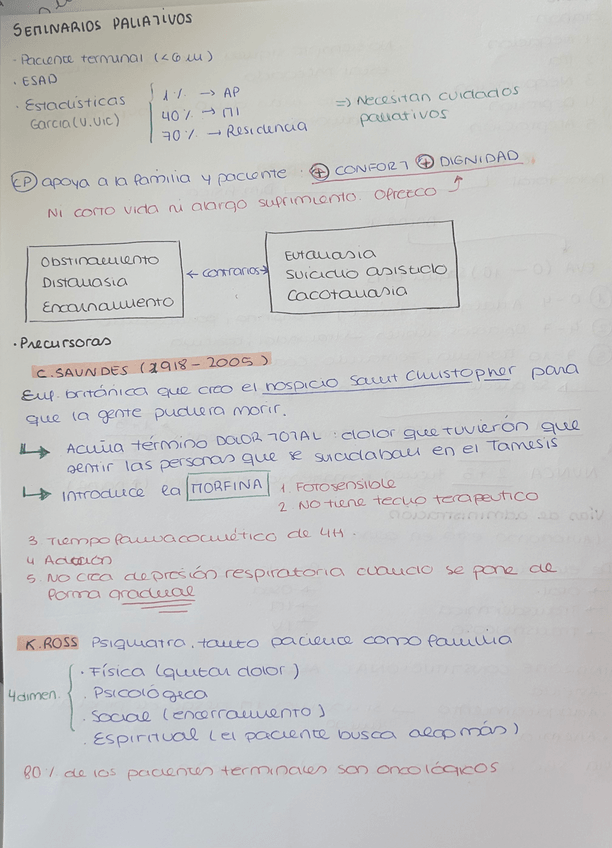 SEMINARIOS PALIATIVOS
· Paciente terminal (<6 m)
· ESAD
· Estadísticas García (U.Vic)
1% → AP
40% → MI
70% → Residencia
=> Necesitan cuidados paliativos
CP apoya a la familia y paciente : + CONFORT + DIGNIDAD
Ni corto vida ni alargo sufrimiento. Ofrezco
Obstinamiento
Distanasia
Encarnizamiento
← contrarios →
Eutanasia
Suicidio asistido
Cacotanasia
· Precursoras
C. SAUNDES (1918-2005)
Enf. británica que creo el hospicio saint Christopher para
que la gente pudiera morir.
↳ Acuña término DOLOR TOTAL : dolor que tuvierón que
sentir las personas que se suicidaban en el Tamesis
↳ Introduce la MORFINA
1. Fotosensible
2. NO tiene techo terapeutico
3 Tiempo farmacocinético de 4H.
4 Adicción
5. NO crea depresión respiratoria cuando se pone de
forma gradual
K. ROSS Psiquiatra, tanto paciente como familia
4 dimen.
· Física (quitar dolor)
· Psicológica
· Social (encerramiento)
· Espiritual (el paciente busca algo más)
80% de los pacientes terminales son oncológicos